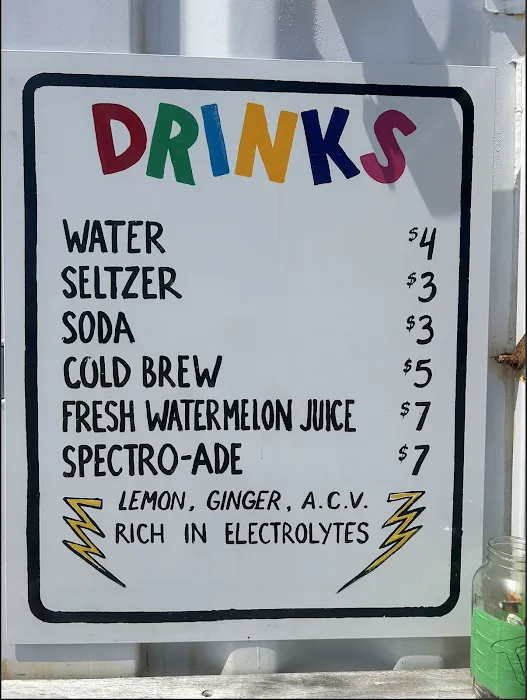 DRINKS
WATER $4
SELTZER $3
SODA $3
COLD BREW $5
FRESH WATERMELON JUICE $7
SPECTRO-ADE $7
LEMON, GINGER, A.C.V.
RICH IN ELECTROLYTES